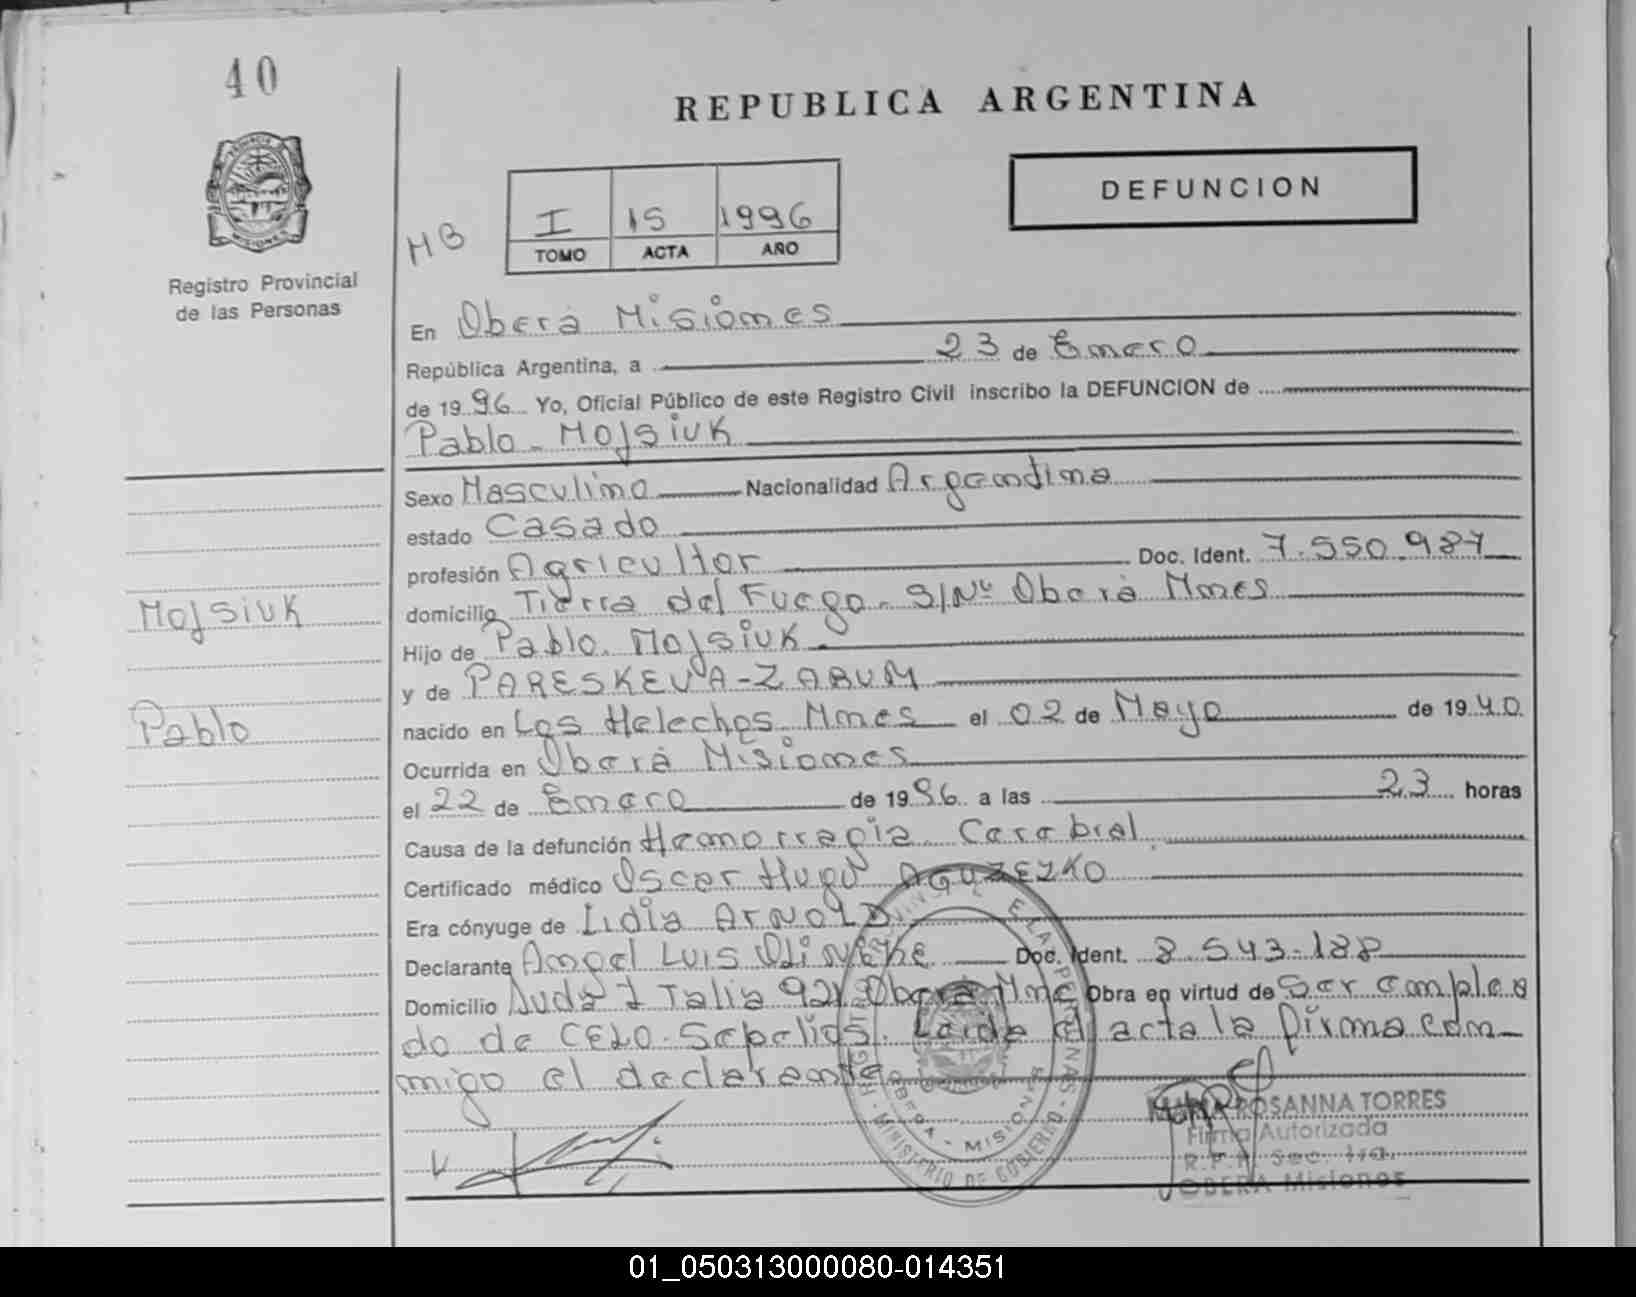 40
REPUBLICA ARGENTINA
DEFUNCION
PROVINCIA
MISIONES
Registro Provincial
de las Personas
HB
I 15 1996
TOMO ACTA AÑO
En Oberá Misiones
República Argentina, a 23 de Enero
de 1996 Yo, Oficial Público de este Registro Civil inscribo la DEFUNCION de
Pablo - Mojsiuk
Sexo Masculino Nacionalidad Argentina
estado Casado
profesión Agricultor Doc. Ident. 7.550.987
domicilio Tierra del Fuego - S/Nº Oberá Mnes
Hijo de Pablo Mojsiuk
y de PARESKEVA - ZABUM
nacido en Los Helechos Mnes el 02 de Mayo de 1940
Ocurrida en Oberá Misiones
el 22 de Enero de 1996 a las 23 horas
Causa de la defunción Hemorragia Cerebral
Certificado médico Oscar Hugo
Era cónyuge de Lidia ARNOLD
Declarante Angel Luis Doc. Ident. 8.543.188
Domicilio Italia 921 Oberá Mnes Obra en virtud de Ser emplea
do de CELO Sepelios. Leída el acta la firma con
migo el declarante
Mojsiuk
Pablo
MINISTERIO DE GOBIERNO
OBERA - MISIONES
ROSANNA TORRES
Firma Autorizada
R.P.P. Sec. 1ra.
OBERA Misiones
01_050313000080-014351